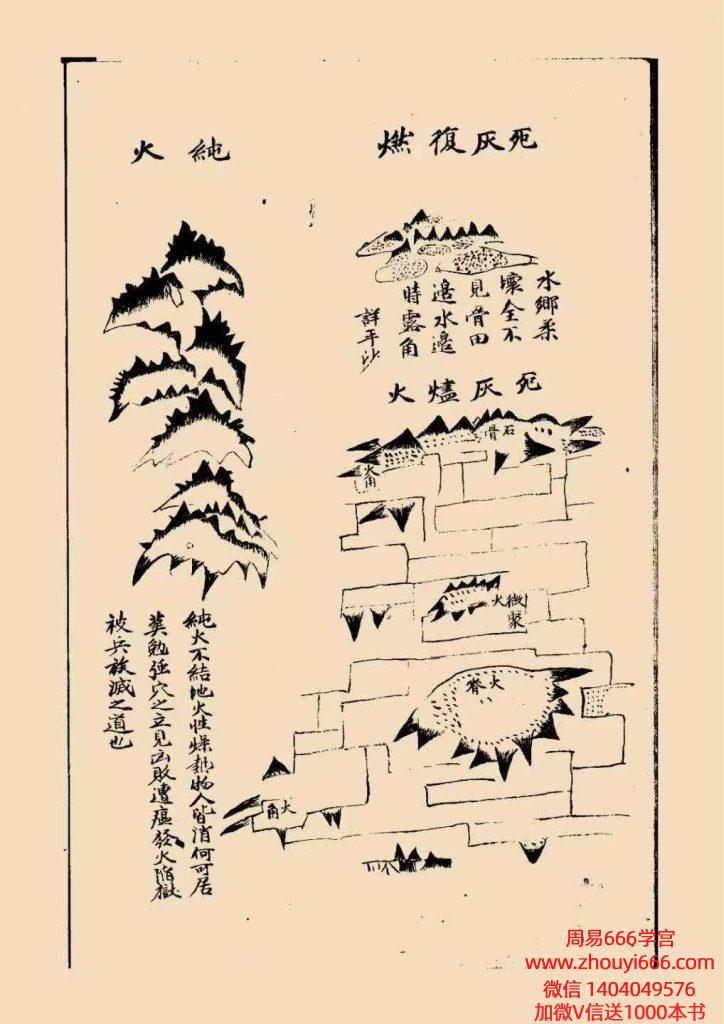 死灰復燃
水鄉柔
壞全不
見骨田
邉水邉
時露角
詳平沙
死灰燼火
石骨
火角
微聚火
火脊
火角
純火
純火不結地火性燥熱物人皆消何可居
葬勉强穴之立見凶敗遭瘟發火陷獄
被兵族滅之道也
周易666学宫
www.zhouyi666.com
微信 1404049576
加微V信送1000本书